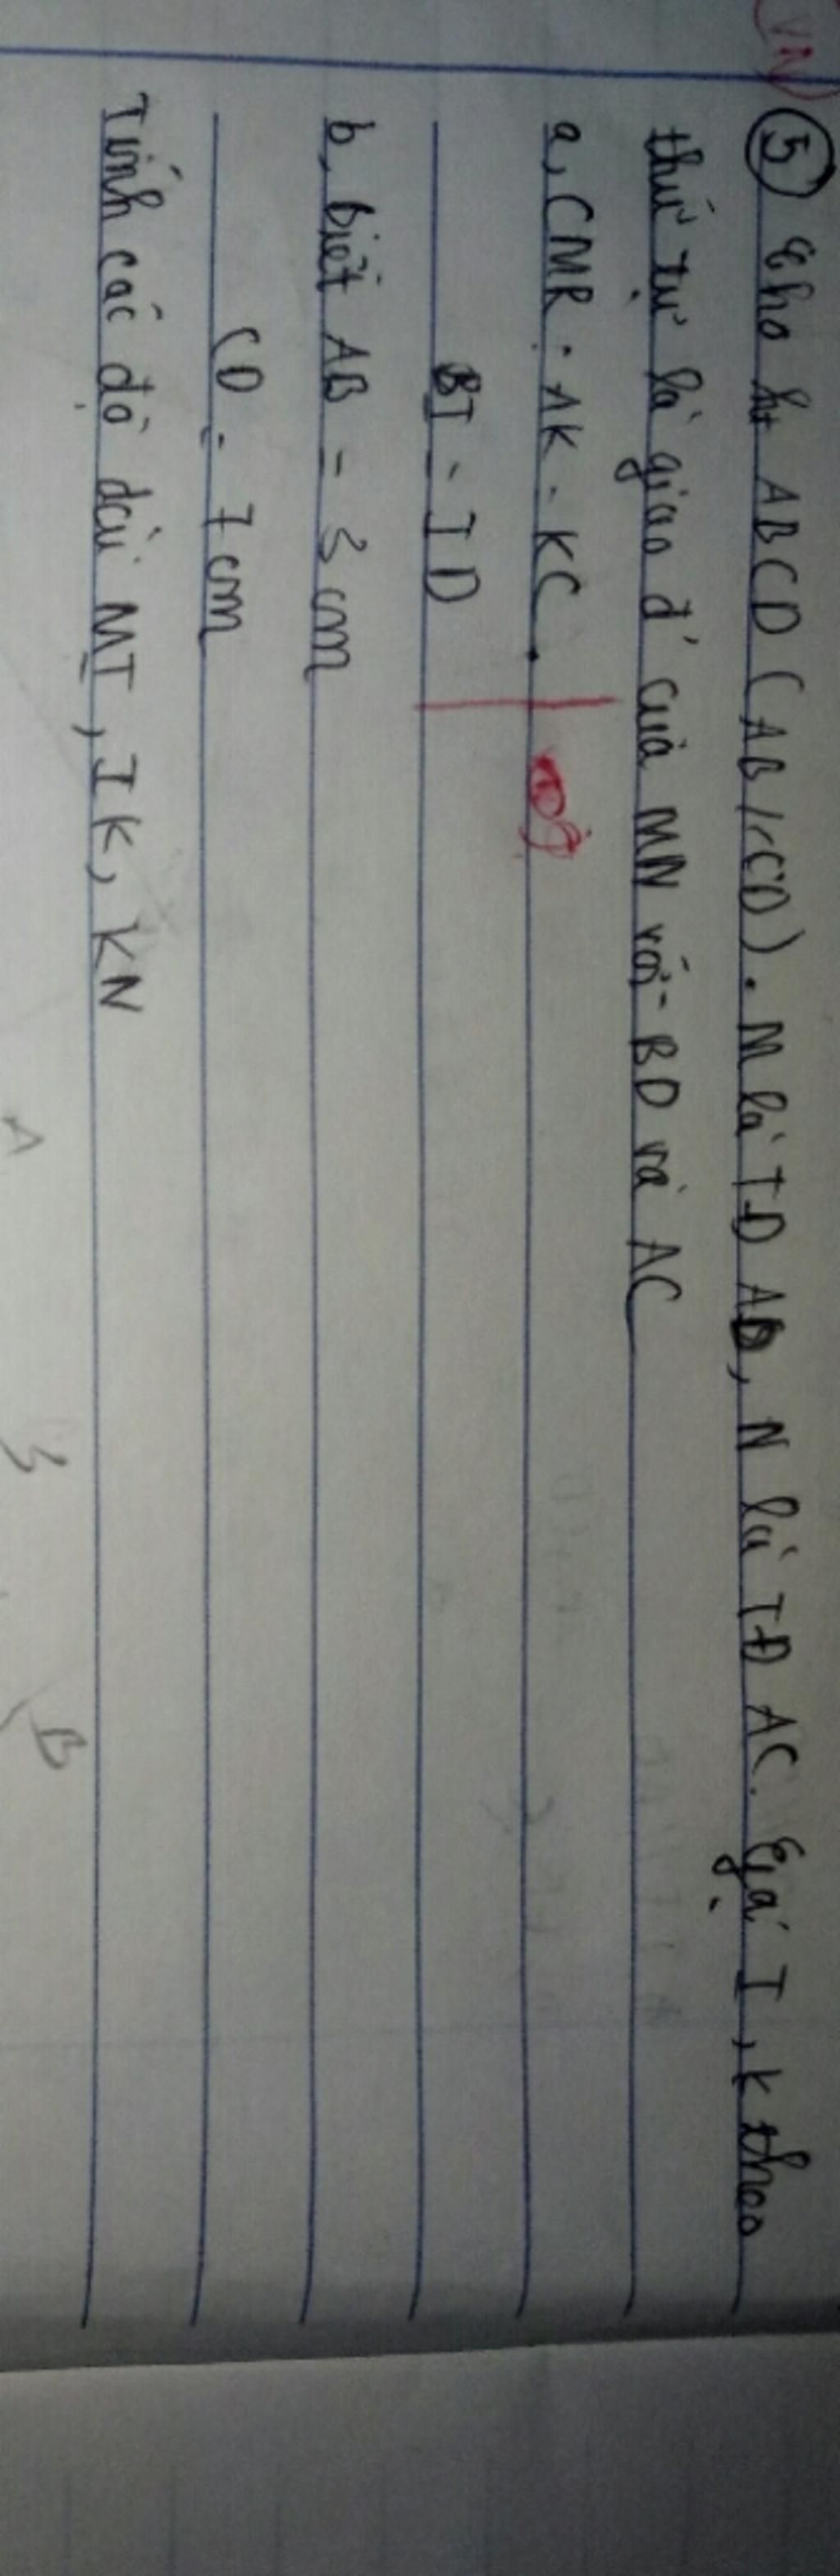 VN
⑤ Cho ht ABCD (AB//CD). M là TĐ AD, N là TĐ AC. Gọi I, K theo
thứ tự là giao đ' của MN với BD và AC
a, CMR: AK = KC.
BI = ID
b, biết AB = 3cm
CD = 7cm
Tính các độ dài MI, IK, KN
A 3 B